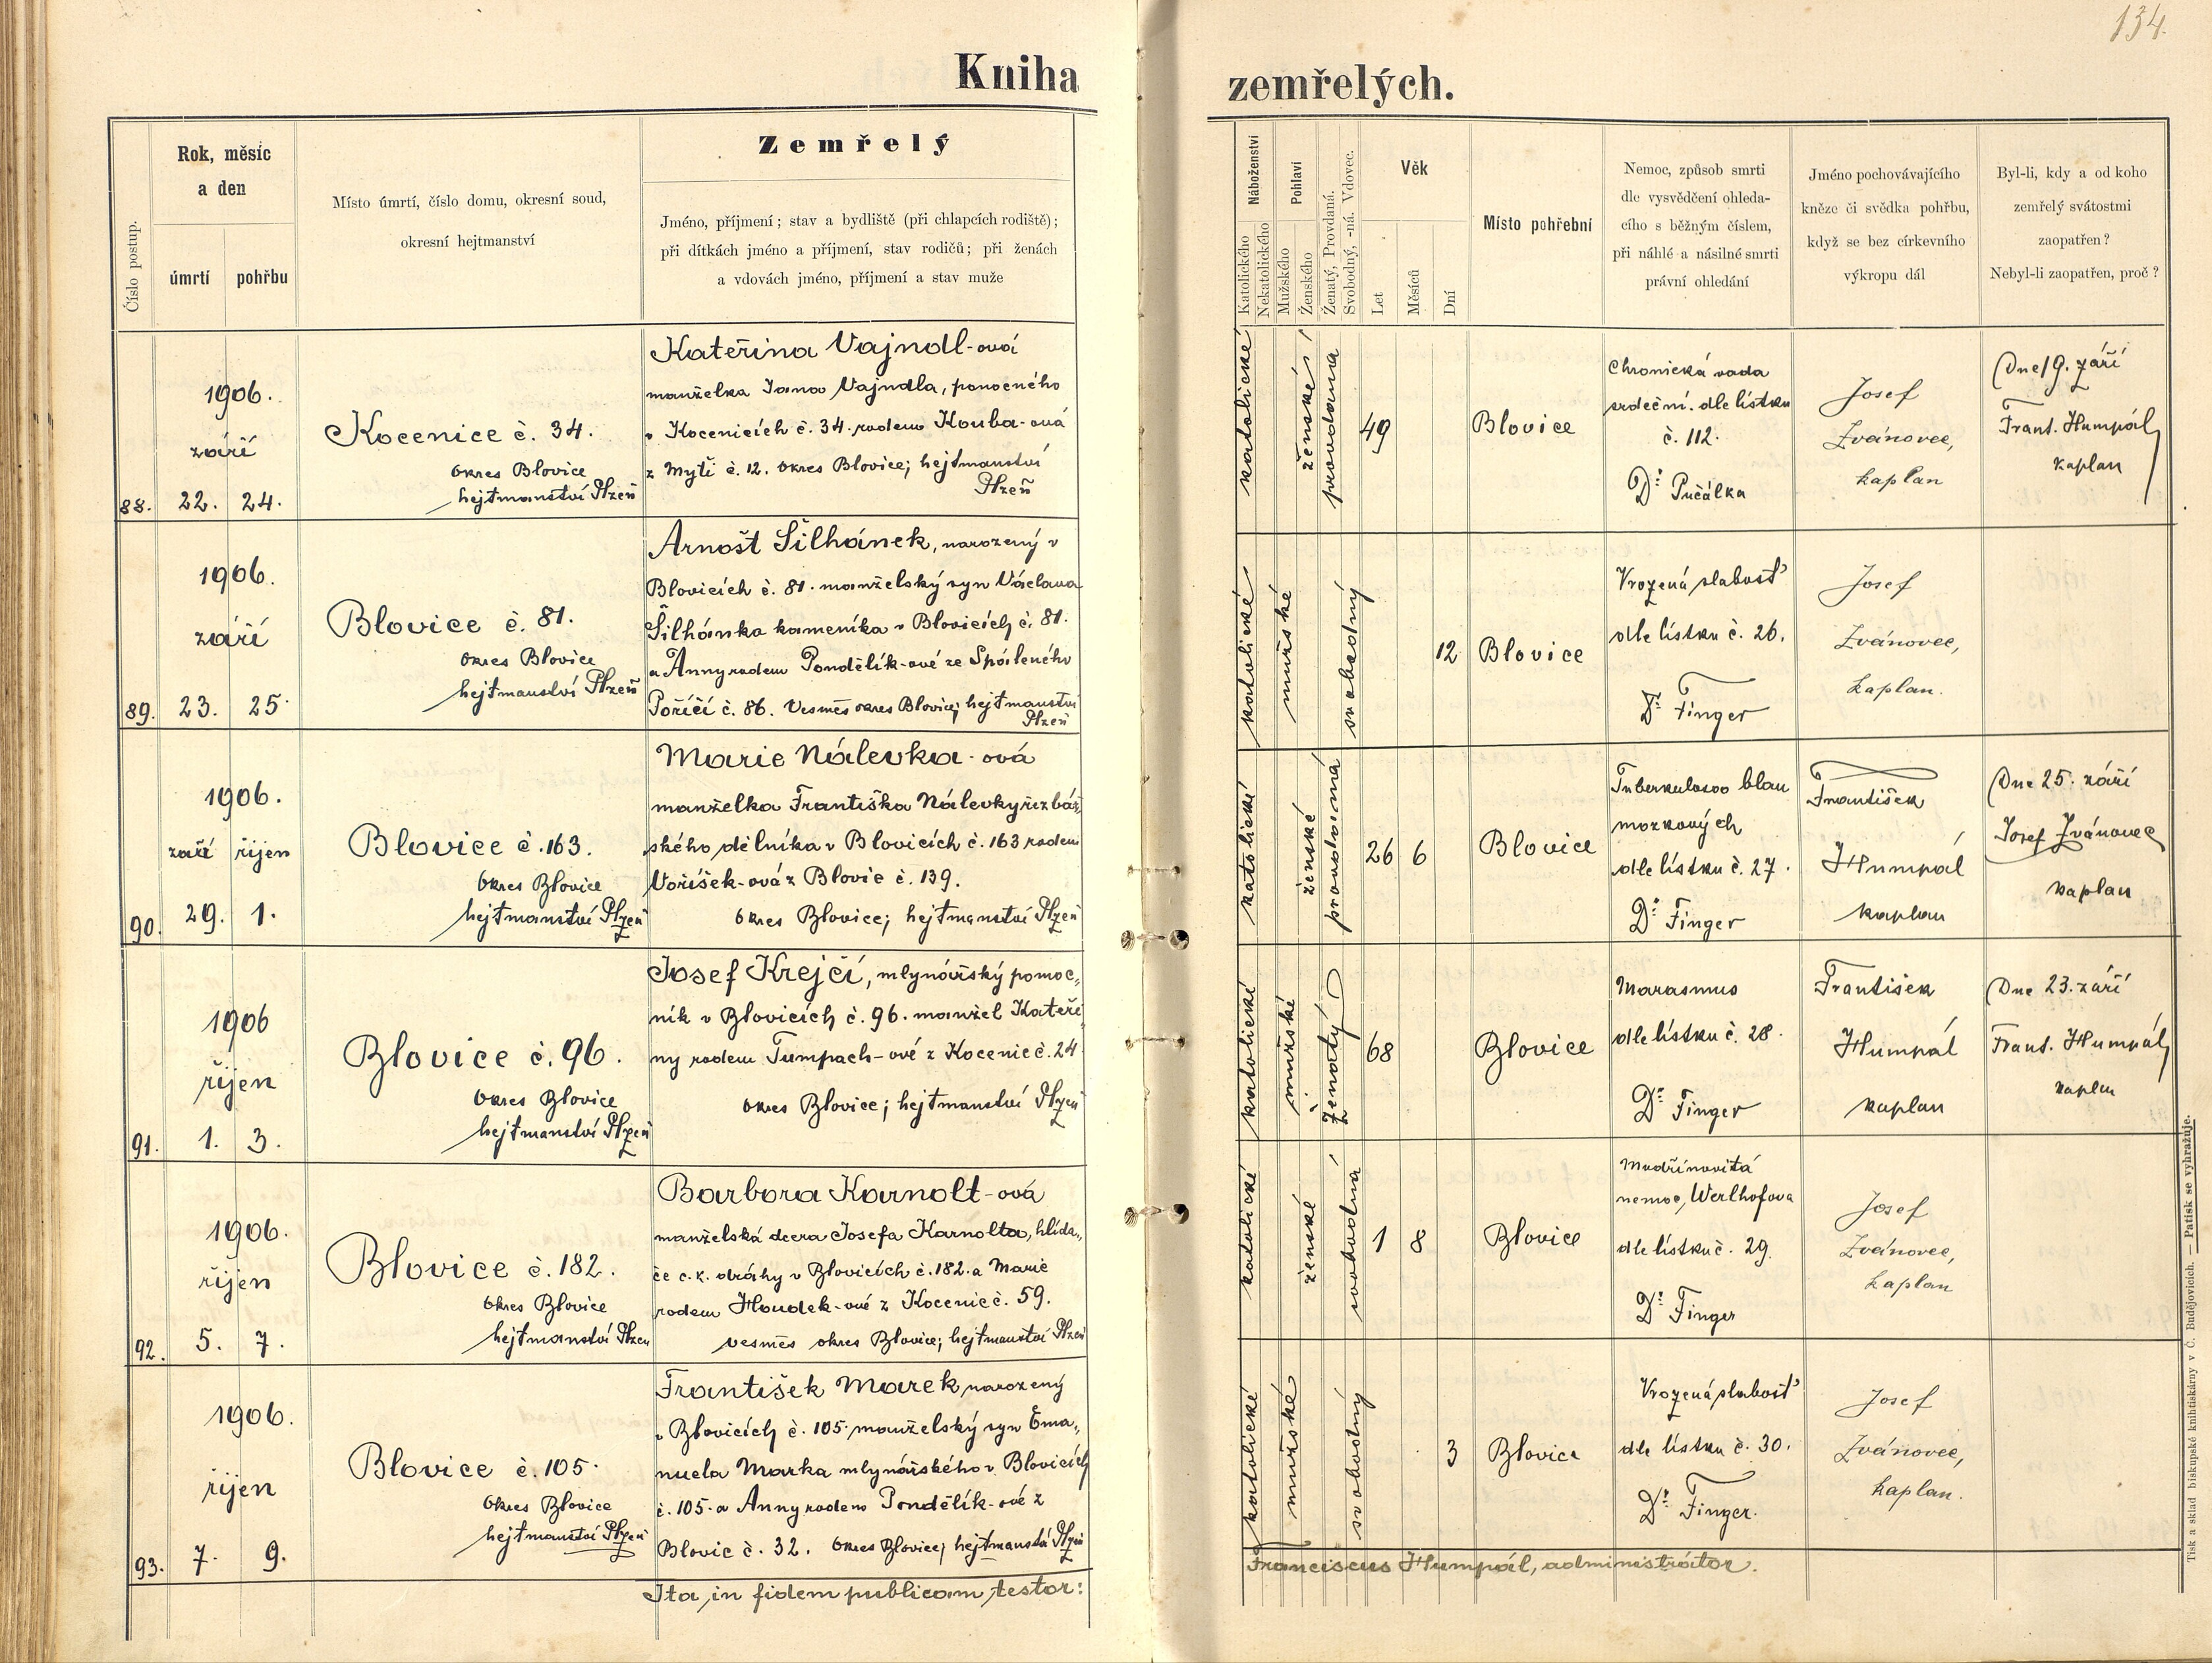 134.
Kniha zemřelých.
Číslo postup.
Rok, měsíc
a den
úmrtí
pohřbu
Místo úmrtí, číslo domu, okresní soud,
okresní hejtmanství
Zemřelý
Jméno, příjmení; stav a bydliště (při chlapcích rodiště);
při dítkách jméno a příjmení, stav rodičů; při ženách
a vdovách jméno, příjmení a stav muže
Náboženství
Katolického
Nekatolického
Pohlaví
Mužského
Ženského
Ženatý, Provdaná.
Svobodný, -ná. Vdovec.
Věk
Let
Měsíců
Dní
Místo pohřební
Nemoc, způsob smrti
dle vysvědčení ohleda-
cího s běžným číslem,
při náhlé a násilné smrti
právní ohledání
Jméno pochovávajícího
kněze či svědka pohřbu,
když se bez církevního
výkropu dál
Byl-li, kdy a od koho
zemřelý svátostmi
zaopatřen?
Nebyl-li zaopatřen, proč?
88.
1906.
září
22. 24.
Kocenice č. 34.
okres Blovice
hejtmanství Plzeň
Kateřina Vajndl-ová
manželka Jana Vajndla, ponocného
v Kocenicích č. 34. rodem Kouba-ová
z Mytí č. 12. okres Blovice; hejtmanství
Plzeň
katolické
ženské
provdaná
49
Blovice
Chronická vada
srdeční. dle lístku
č. 112.
Dr. Pučálka
Josef
Zvánovec,
kaplan
Dne 19. září
Frant. Humpál,
kaplan
89.
1906.
září
23. 25.
Blovice č. 81.
okres Blovice
hejtmanství Plzeň
Arnošt Šilhánek, narozený v
Blovicích č. 81. manželský syn Václava
Šilhánka kameníka v Blovicích č. 81.
a Anny rodem Pondělík-ové ze Spáleného
Poříčí č. 86. Vesměs okres Blovice; hejtmanství
Plzeň
katolické
mužské
svobodný
12
Blovice
Vrozená slabosť
dle lístku č. 26.
Dr. Finger
Josef
Zvánovec,
kaplan.
90.
1906.
září říjen
29. 1.
Blovice č. 163.
okres Blovice
hejtmanství Plzeň
Marie Nálevka-ová
manželka Františka Nálevky řezbář-
ského dělníka v Blovicích č. 163 rodem
Voříšek-ová z Blovic č. 139.
okres Blovice; hejtmanství Plzeň
katolické
ženské
provdaná
26 6
Blovice
Tuberkulosoo blan
mozkových
dle lístku č. 27.
Dr. Finger
František
Humpál
kaplan
Dne 25. září
Josef Zvánovec
kaplan
91.
1906
říjen
1. 3.
Blovice č. 96.
okres Blovice
hejtmanství Plzeň
Josef Krejčí, mlynářský pomoc„
ník v Blovicích č. 96. manžel Kateři
ny rodem Tumpach-ové z Kocenic č. 24
okres Blovice; hejtmanství Plzeň
katolické
mužské
ženatý
68
Blovice
Marasmus
dle lístku č. 28.
Dr. Finger
František
Humpál
kaplan
Dne 23. září
Frant. Humpál,
kaplan
92.
1906.
říjen
5. 7.
Blovice č. 182.
okres Blovice
hejtmanství Plzeň
Barbora Karnolt-ová
manželská dcera Josefa Karnolta, hlída„
če c. k. dráhy v Blovicích č. 182. a Marie
rodem Houdek-ové z Kocenic č. 59.
vesměs okres Blovice; hejtmanství Plzeň
katolické
ženské
svobodná
1 8
Blovice
Modřinovitá
nemoc, Werlhofova
dle lístku č. 29.
Dr. Finger
Josef
Zvánovec,
kaplan
93.
1906.
říjen
7. 9.
Blovice č. 105.
okres Blovice
hejtmanství Plzeň
František Marek, narozený
v Blovicích č. 105. manželský syn Ema„
nuela Marka mlynářského v Blovicích
č. 105. a Anny rodem Pondělík-ové z
Blovic č. 32. okres Blovice; hejtmanství Plzeň
katolické
mužské
svobodný
3
Blovice
Vrozená slabosť
dle lístku č. 30.
Dr. Finger.
Josef
Zvánovec,
kaplan.
Ita in fidem publicam testor:
Franciscus Humpál, administrátor.
Tisk a sklad biskupské knihtiskárny v Č. Budějovicích. — Patisk se vyhražuje.